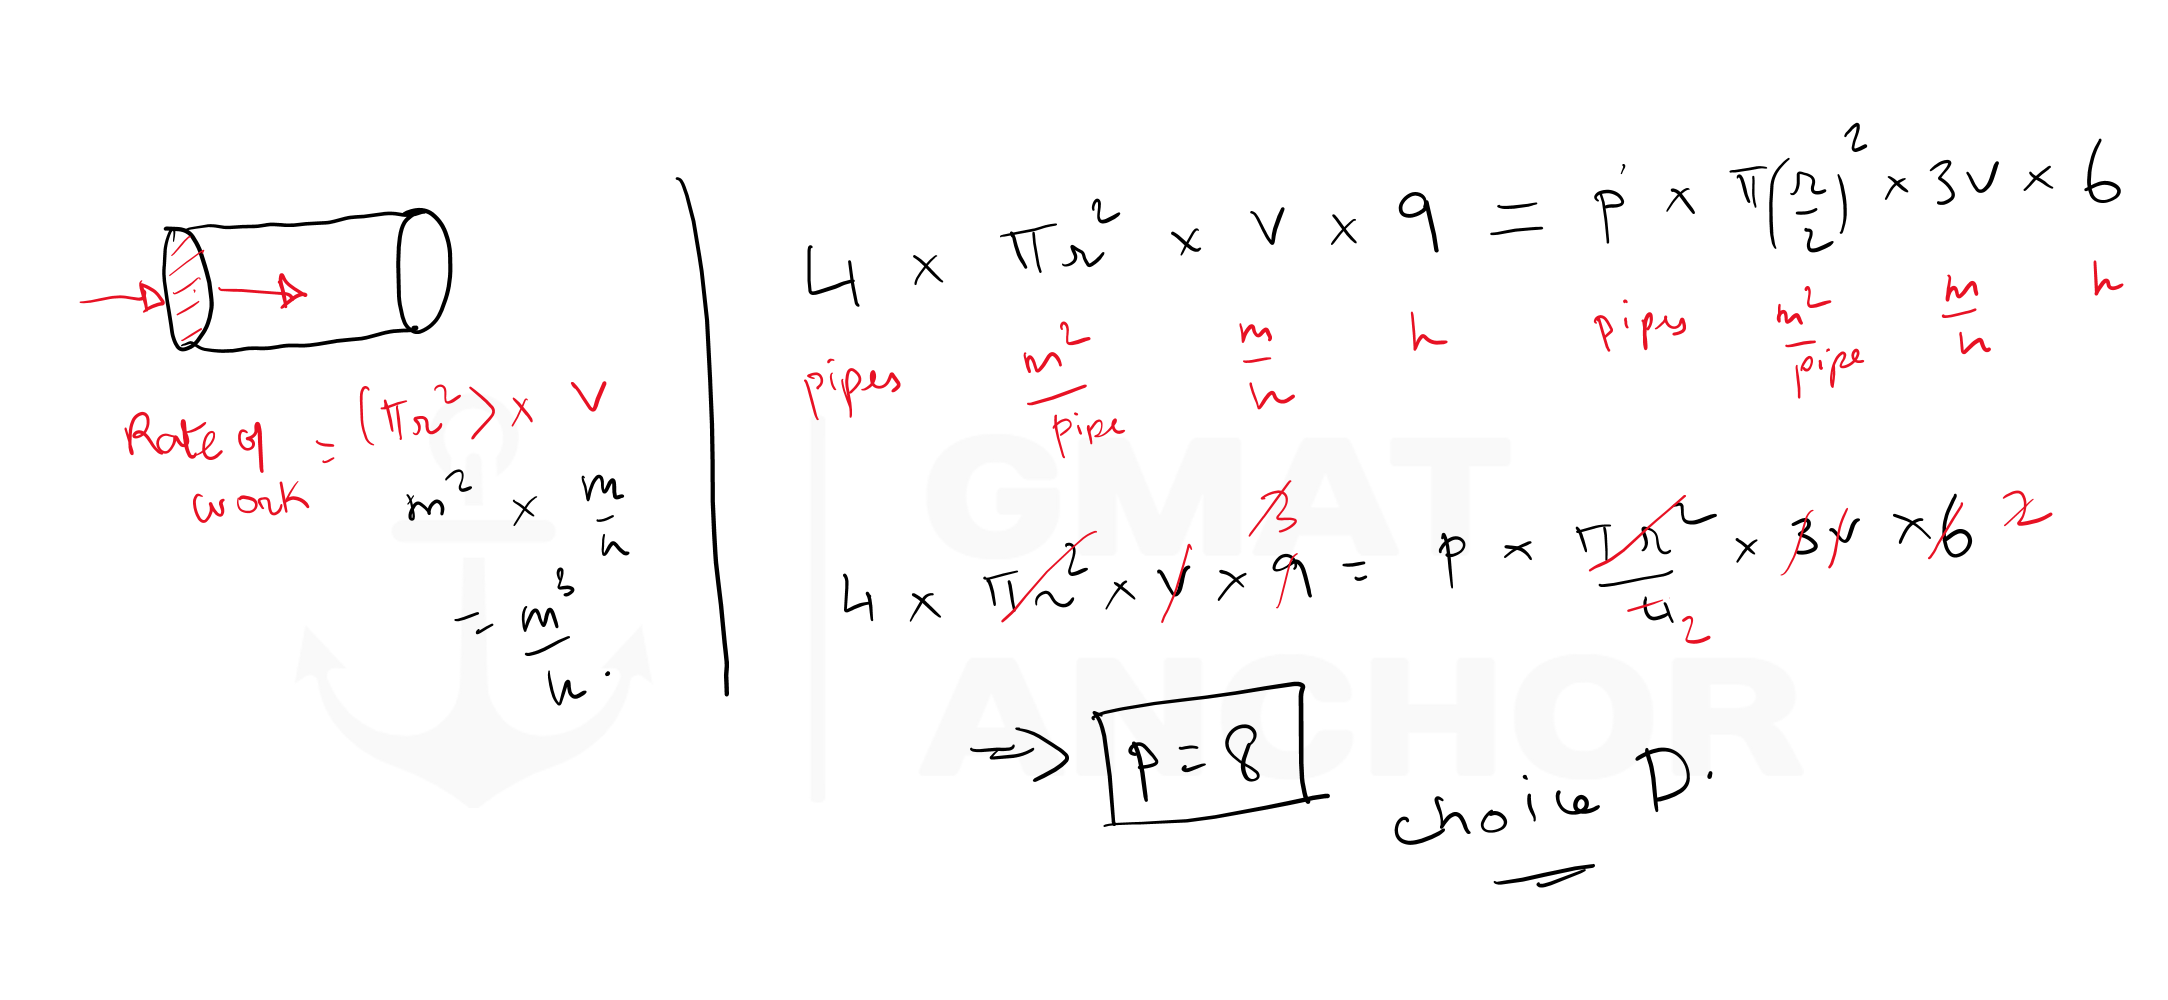 Rate of work = (πr²) × v
m² × m/h
= m³/h.
4 × πr² × v × 9 = p × π(r/2)² × 3v × 6
pipes m²/pipe m/h h pipes m²/pipe m/h h
4 × πr² × v × 9 3 = p × πr²/4 2 × 3v × 6 2
⇒ p = 8
choice D.
GMAT
ANCHOR